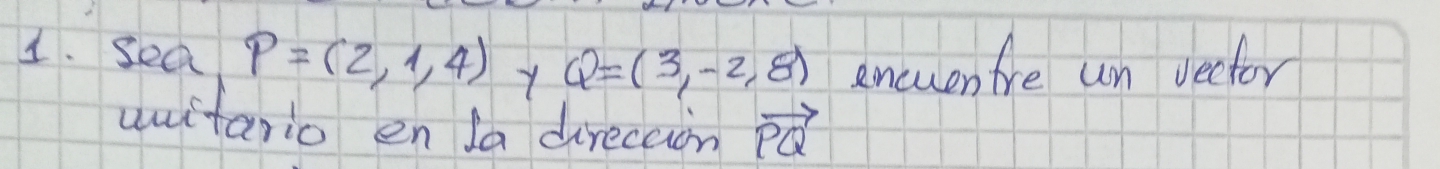 1. Sea P=(2,1,4) y Q=(3,-2,8) encuentre un vector
unitario en la dirección PQ